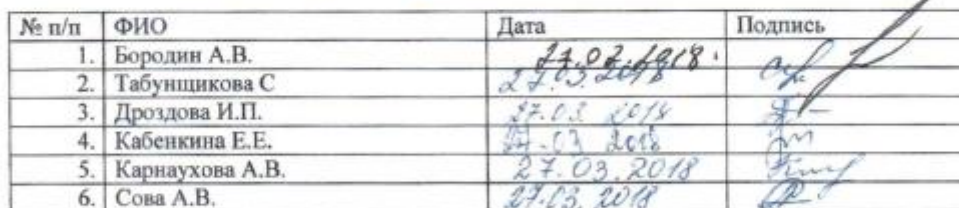 № п/п ФИО Дата Подпись
1. Бородин А.В. 27.03.2018.
2. Табунщикова С 27.03.2018
3. Дроздова И.П. 27.03 2018
4. Кабенкина Е.Е. 27.03 2018
5. Карнаухова А.В. 27.03.2018
6. Сова А.В. 27.03.2018